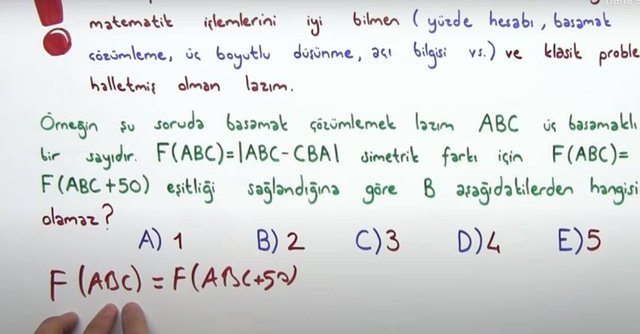 matematik işlemlerini iyi bilmen (yüzde hesabı, basamak
çözümleme, üç boyutlu düşünme, açı bilgisi vs.) ve klasik proble
halletmiş olman lazım.
Örneğin şu soruda basamak çözümlemek lazım ABC üç basamaklı
bir sayıdır. F(ABC)=|ABC-CBA| simetrik farkı için F(ABC)=
F(ABC+50) eşitliği sağlandığına göre B aşağıdakilerden hangisi
olamaz?
A) 1 B) 2 C) 3 D) 4 E) 5
F(ABC) = F(ABC+50)